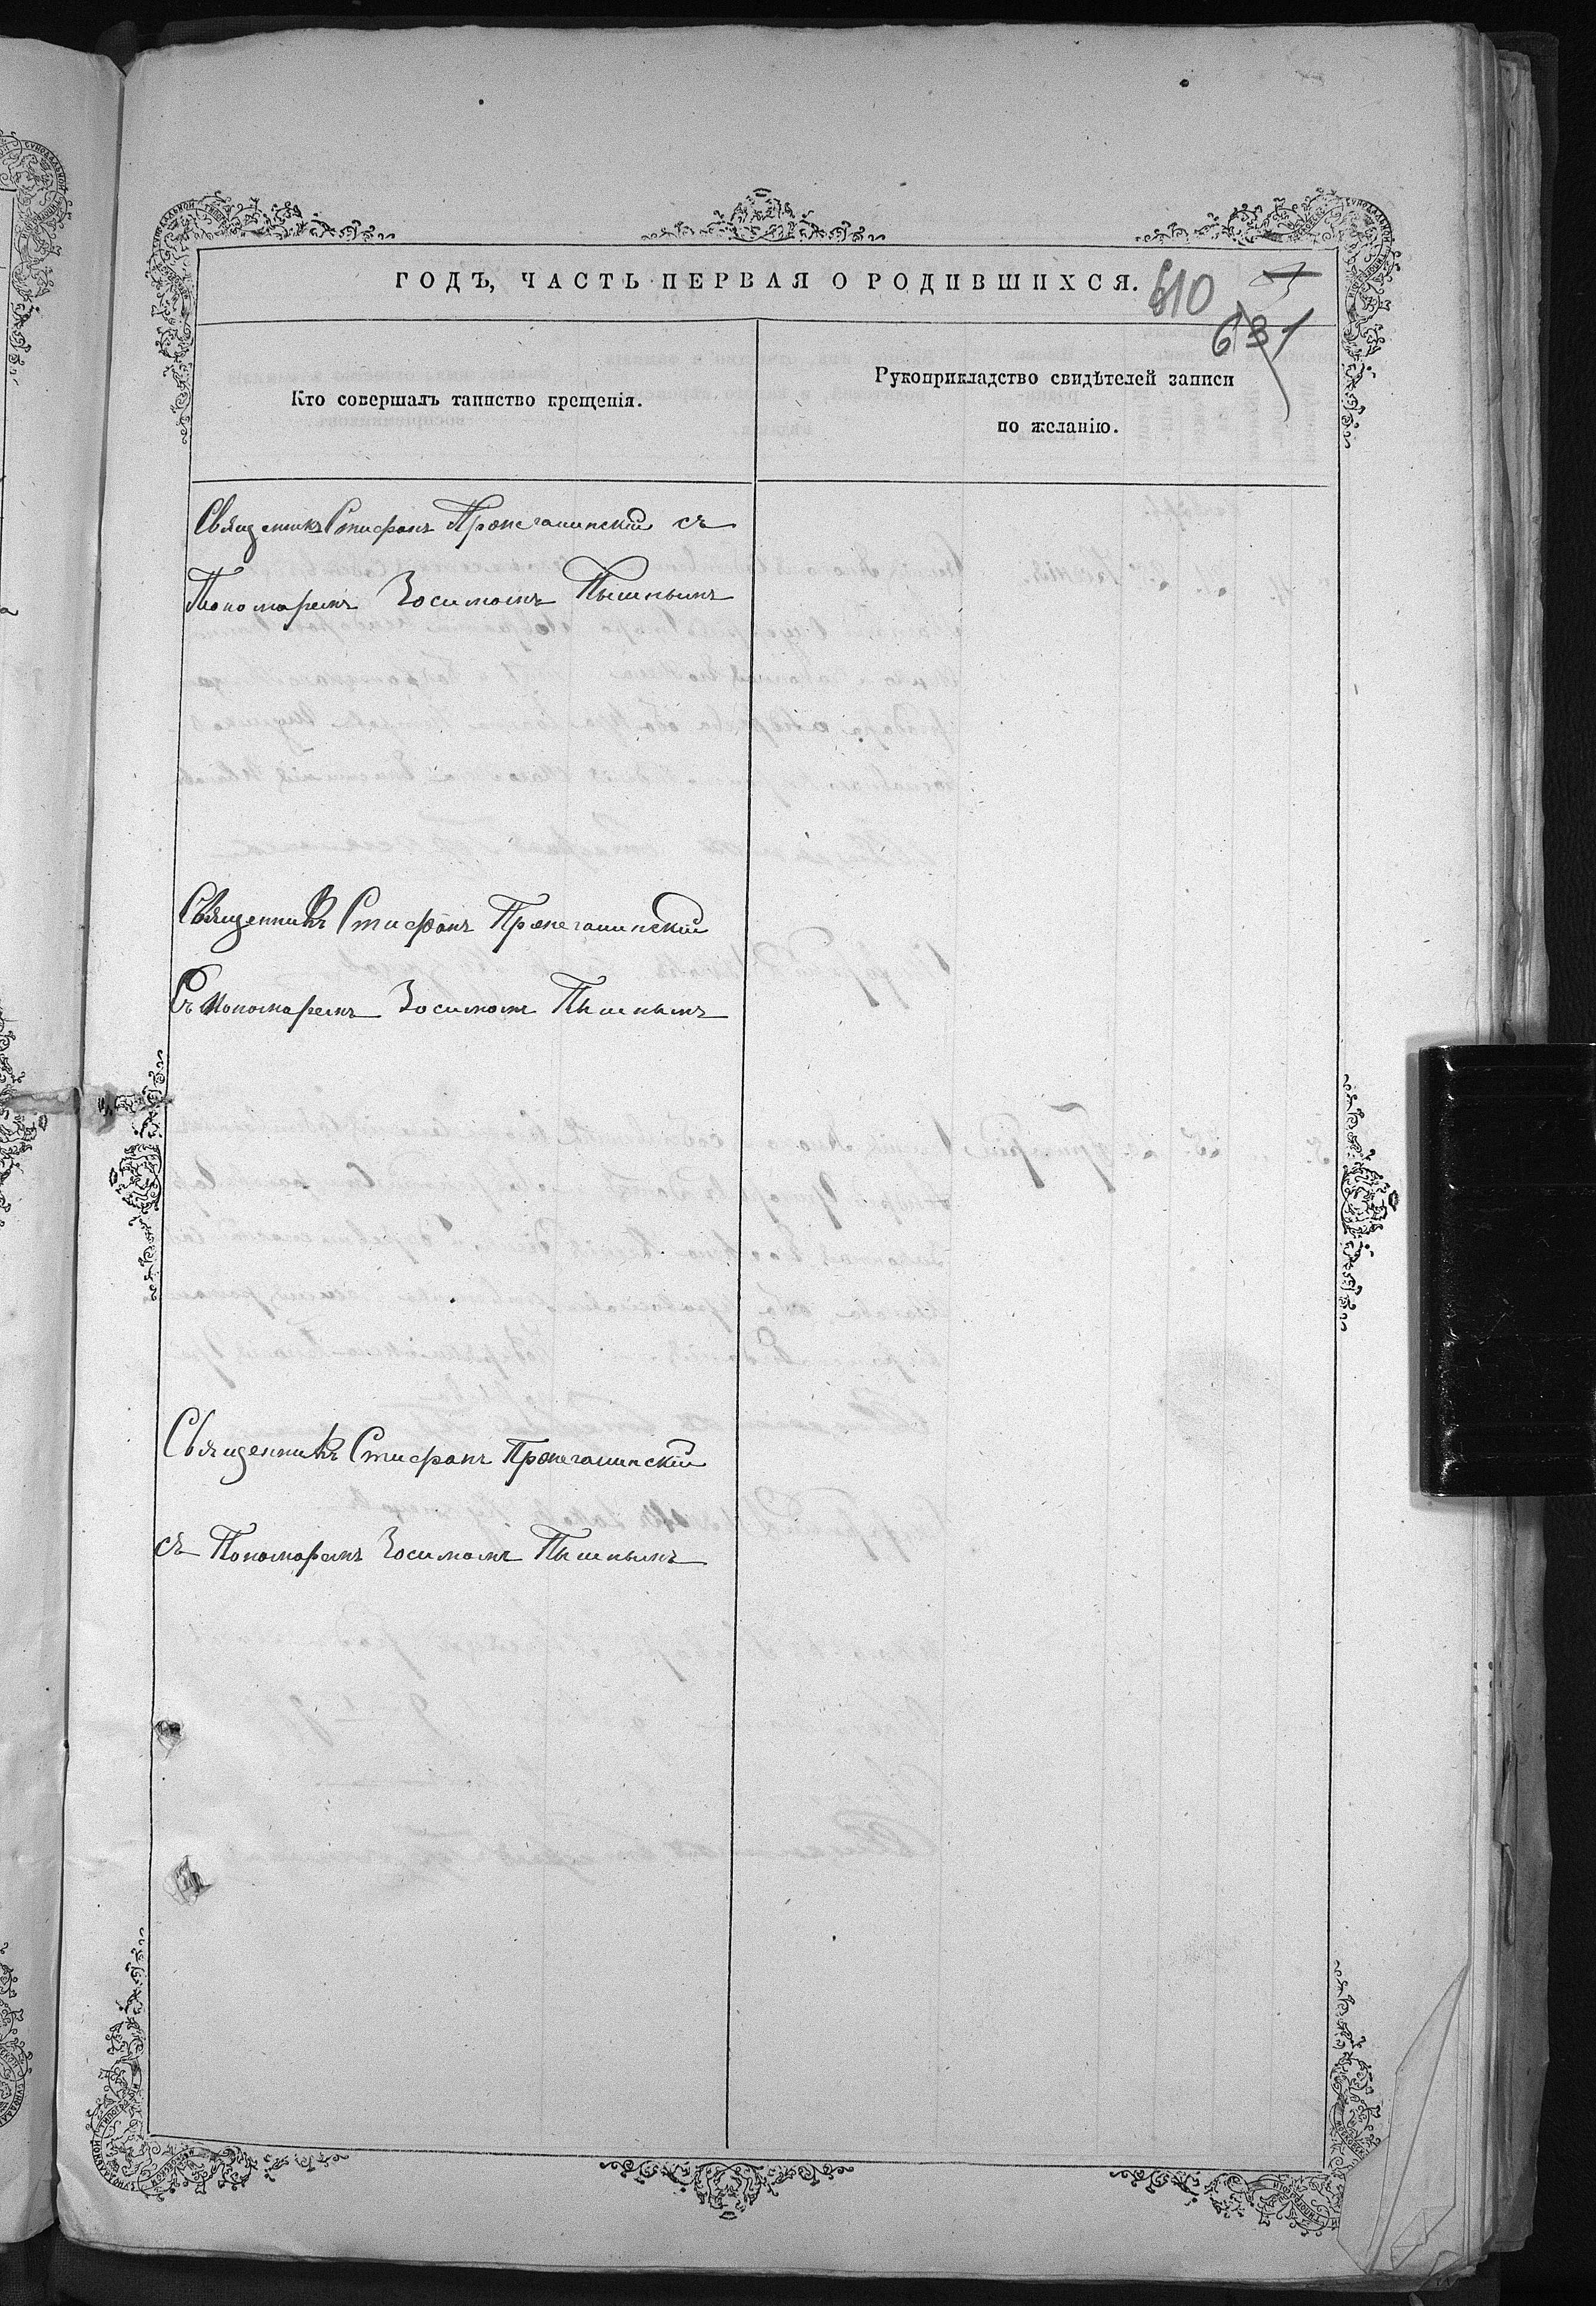 ГОДЪ, ЧАСТЬ ПЕРВАЯ О РОДИВШИХСЯ.
610
631
Кто совершалъ таинство крещенія.
Рукоприкладство свидѣтелей записи
по желанію.
Священникъ Стефанъ съ
Пономаремъ Зосимомъ Пышнымъ
Священникъ Стефанъ
Съ Пономаремъ Зосимомъ Пышнымъ
Священникъ Стефанъ
съ Пономаремъ Зосимомъ Пышнымъ